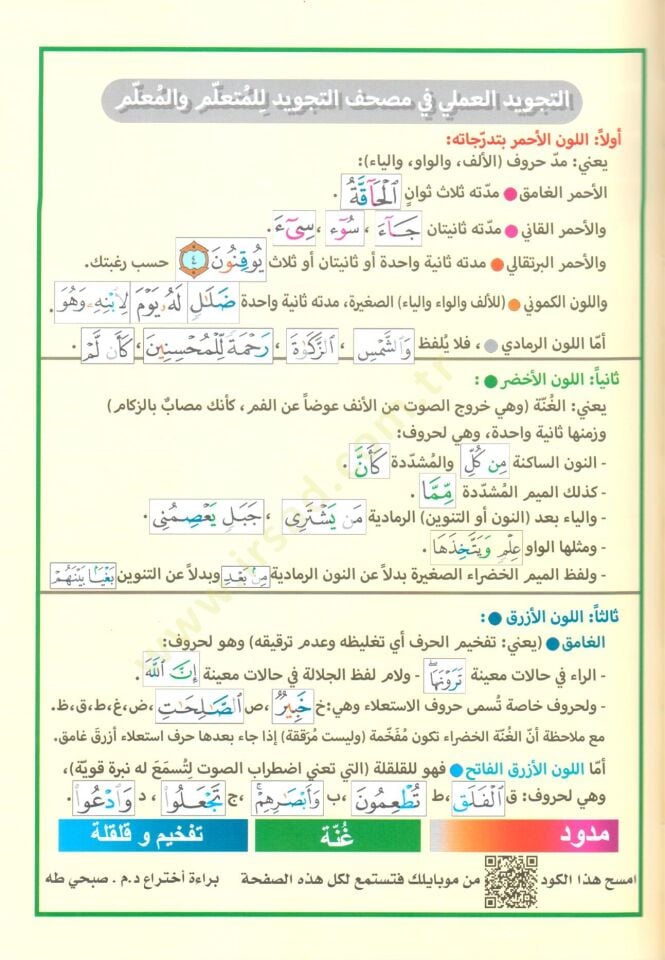 التجويد العملي في مصحف التجويد لِلمُتعلّم والمُعلّم
أولاً: اللون الأحمر بتدرّجاته:
يعني: مدّ حروف (الألف، والواو، والياء):
الأحمر الغامق مدّته ثلاث ثوانٍ ٱلْحَآقَّةُ .
والأحمر القاني مدّته ثانيتان جَآءَ ، سُوٓء ، سِىٓءَ .
والأحمر البرتقالي مدته ثانية واحدة أو ثانيتان أو ثلاث يُوقِنُونَ ٤ حسب رغبتك.
واللون الكموني (للألف والواء والياء) الصغيرة، مدته ثانية واحدة ضَلَٰلٍ لَهُۥ يَوْمَ لِٱبْنِهِۦ وَهُوَ .
أمّا اللون الرمادي ، فلا يُلفظ وَٱلشَّمْسِ ، ٱلزَّكَوٰةَ ، رَحْمَةً لِّلْمُحْسِنِينَ ، كَأَن لَّمْ .
ثانياً: اللون الأخضر :
يعني: الغُنّة (وهي خروج الصوت من الأنف عوضاً عن الفم، كأنك مصابٌ بالزكام)
وزمنها ثانية واحدة، وهي لحروف:
- النون الساكنة مِن كُلِّ والمُشدّدة كَأَنَّ .
- كذلك الميم المُشدّدة مِّمَّا .
- والياء بعد (النون أو التنوين) الرمادية مَن يَشْتَرِى ، جَبَلٍ يَعْصِمُنِى .
- ومثلها الواو عِلْمٍ وَيَتَّخِذَهَا .
- ولفظ الميم الخضراء الصغيرة بدلاً عن النون الرمادية مِنۢ بَعْدِ وبدلاً عن التنوين بَغْيًۢا بَيْنَهُمْ
ثالثاً: اللون الأزرق :
الغامق (يعني: تفخيم الحرف أي تغليظه وعدم ترقيقه) وهو لحروف:
- الراء في حالات معينة تَرَوْنَهَا - ولام لفظ الجلالة في حالات معينة إِنَّ ٱللَّهَ .
- ولحروف خاصة تُسمى حروف الاستعلاء وهي:خ خَبِيرٌ ،ص ٱلصَّٰلِحَٰتِ ،ض،غ،ط،ق،ظ.
مع ملاحظة أنّ الغُنّة الخضراء تكون مُفَخّمة (وليست مُرَققة) إذا جاء بعدها حرف استعلاء أزرقَ غامق.
أمّا اللون الأزرق الفاتح فهو للقلقلة (التي تعني اضطراب الصوت لِتُسمَعَ له نبرة قويّة)،
وهي لحروف: ق ٱلْفَلَقِ ،ط تُطْعِمُونَ ،ب وَأَبْصَٰرِهِمْ ،ج تَجْعَلُوا۟ ، د وَٱدْعُوا۟ .
مدود
غُنّة
تفخيم و قلقلة
امسح هذا الكود من موبايلك فتستمع لكل هذه الصفحة براءة أختراع د.م . صبحي طه